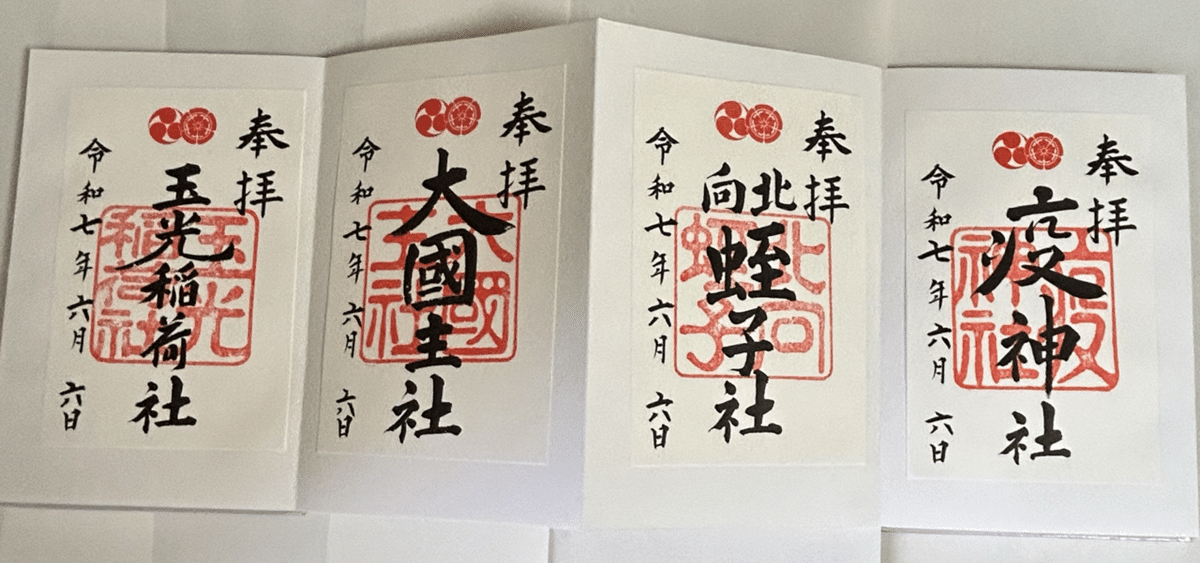 奉拝
疫神社
疫神社
令和七年六月六日
奉拝
北向
蛭子社
北向蛭子
令和七年六月六日
奉拝
大國主社
大國主社
令和七年六月六日
奉拝
玉光稲荷社
玉光稲荷社
令和七年六月六日